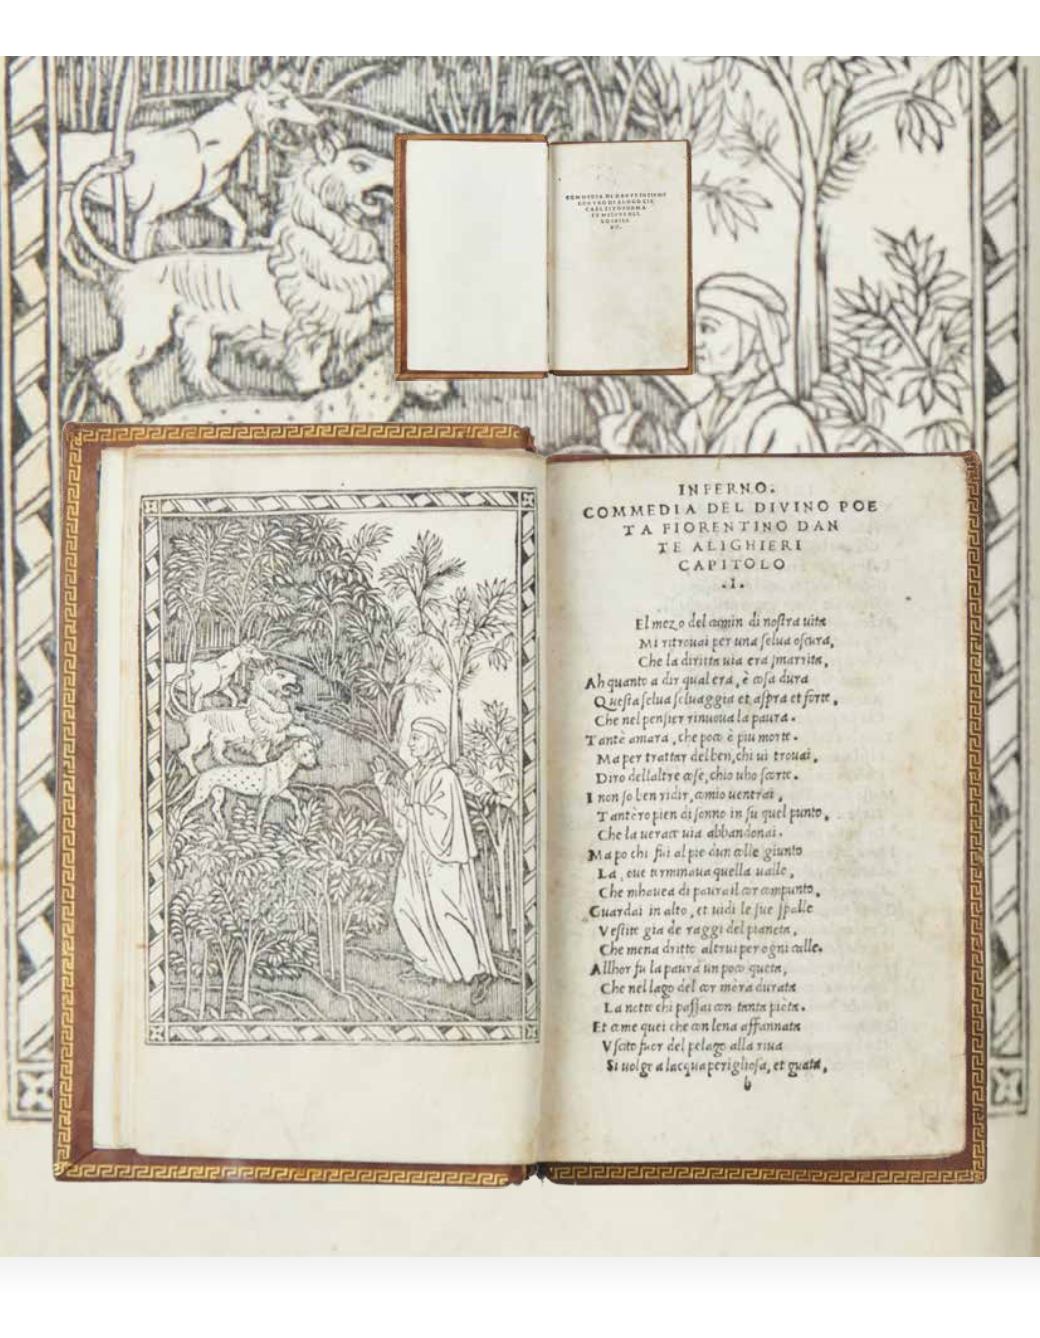 COMMEDIA DI DANTE INSIEME
CON VNO DIALOGO CIR
CA EL SITO FORMA
ET MISVRE DEL
LO INFER
NO.
INFERNO.
COMMEDIA DEL DIVINO POE
TA FIORENTINO DAN
TE ALIGHIERI
CAPITOLO
.I.
El mezo del camin di nostra uita
Mi ritrouai per una selua oscura,
Che la diritta uia era smarrita,
Ah quanto a dir qual era, è cosa dura
Questa selua seluaggia et aspra et forte,
Che nel pensier rinuoua la paura.
Tantè amara, che poco è piu morte.
Ma per trattar del ben, chi ui trouai,
Diro dellaltre cose, chio uho scorte.
I non so ben ridir, comio uentrai,
Tantèro pien di sonno in su quel punto,
Che la uerace uia abbandonai.
Ma po chi fui al pie dun colle giunto
La, oue terminaua quella ualle,
Che mhauea di paura il cor compunto,
Guardai in alto, et uidi le sue spalle
Vestite gia de raggi del pianeta,
Che mena dritto altrui per ogni calle.
Allhor fu la paura un poco queta,
Che nel lago del cor mèra durata
La notte chi passai con tanta pièta.
Et come quei che con lena affannata
Vscito fuor del pelago alla riua
Si uolge a lacqua perigliosa, et guata,
b